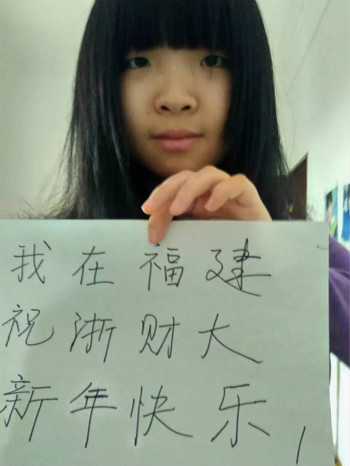 我在福建
祝浙财大
新年快乐！